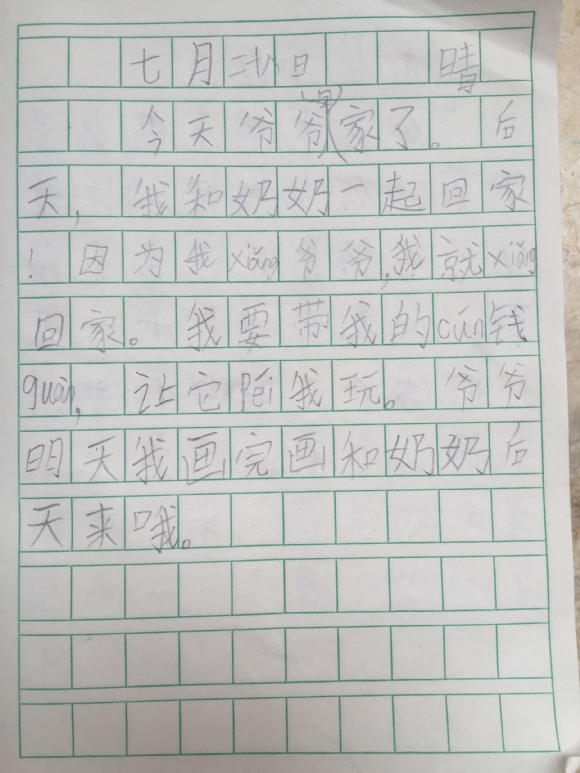 七月二十八日 晴
今天爷爷回家了。后
天,我和奶奶一起回家
!因为我xiǎng爷爷,我就xiǎng
回家。我要带我的cún钱
guàn,让它péi我玩。爷爷
明天我画完画和奶奶后
天来哦。